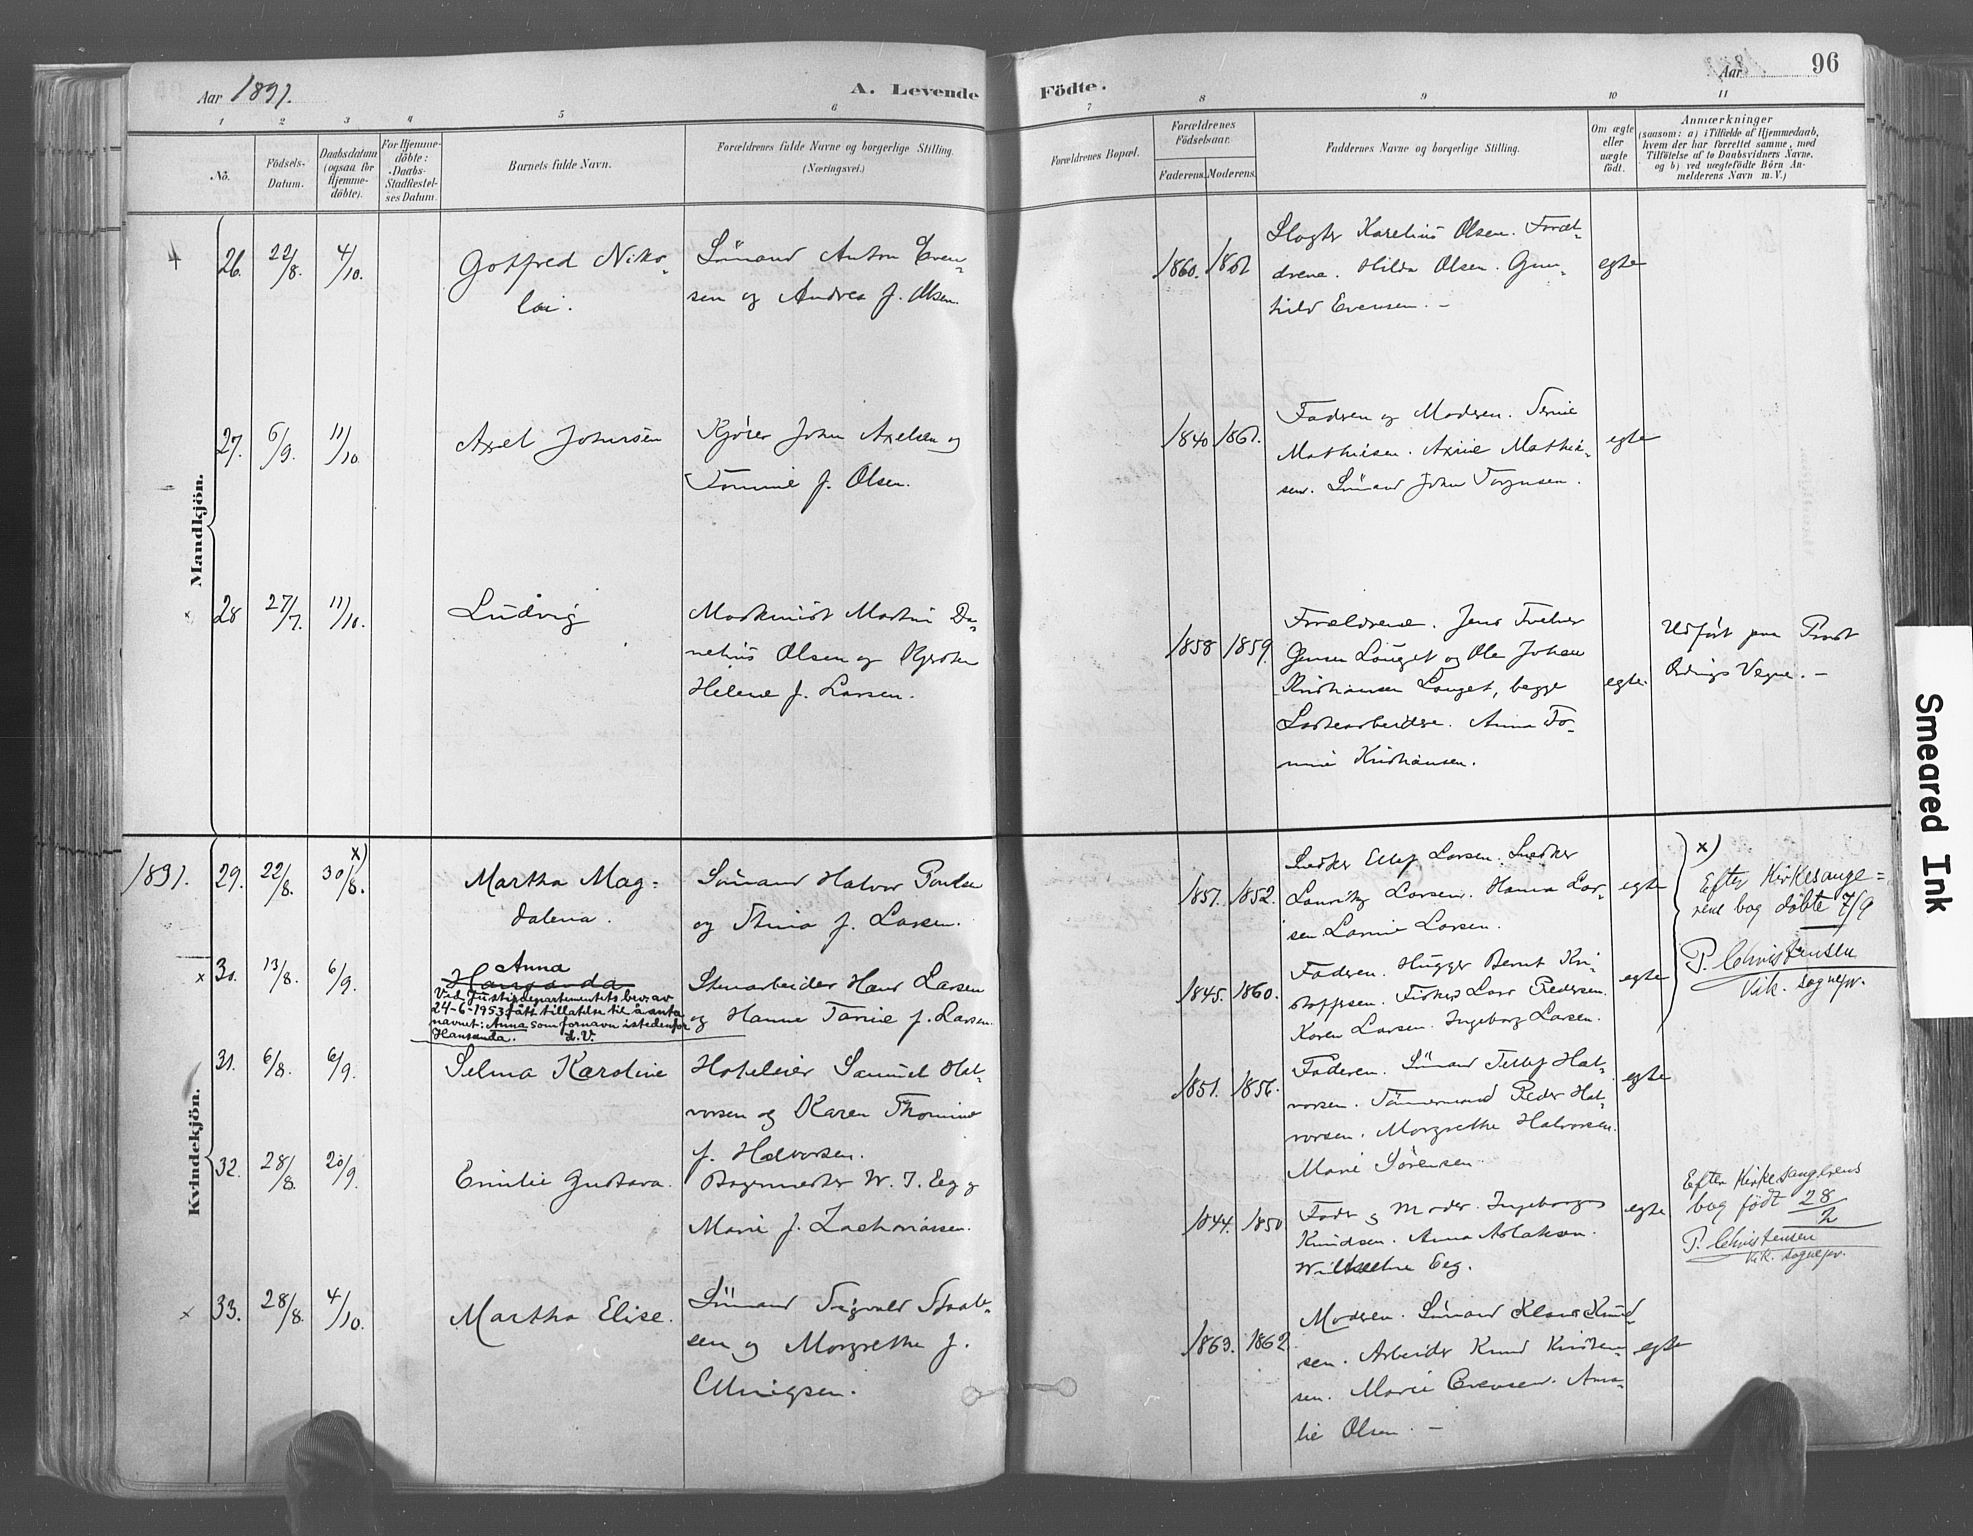 Aar 1891.
A. Levende Födte.
Aar
96
1 2 3 4 5 6 7 8 9 10 11
No.
Födsels-
Datum.
Daabsdatum
(ogsaa for
Hjemme-
döbte).
For Hjemme-
döbte:
Daabs-
Stadfæstel-
ses Datum.
Barnets fulde Navn.
Forældrenes fulde Navne og borgerlige Stilling.
(Næringsvei.)
Forældrenes Bopæl.
Forældrenes
Födselsaar.
Faderens. Moderens.
Faddernes Navne og borgerlige Stilling.
Om ægte
eller
uægte
födt.
Anmærkninger
(saasom: a) i Tilfælde af Hjemmedaab,
hvem der har forrettet samme, med
Tilföielse af to Daabsvidners Navne,
og b) ved uægtefödte Börn An-
melderens Navn m. V.)
Mandkjön.
26. 22/8. 4/10.
Gotfred Niko-
lai.
Sömand Anton Even-
sen og Andrea f. Olsen.
1860. 1861
Slagter Karelius Olsen. Foræl-
drene. Hilda Olsen. Gun-
hild Evensen. -
egte
27. 6/9. 11/10
Axel Johnsen
Kjörer John Axelsen og
Tomine f. Olsen.
1840 1861.
Faderen og Moderen.
Mathisen. Mathie-
sen. Sömand John
egte
28 27/7. 11/10.
Ludvig
Maskinist Martin Da-
nelius Olsen og
Helene f. Larsen.
1858 1859.
Forældrene. Jens
Jensen Lauget og Ole Johan
Kristiansen Lauget, begge
Lastearbeidere. Anna To-
mine Kristiansen.
egte.
Udfört paa Provst
Vegne. -
1891.
Kvindekjön.
29. 22/8. 30/8. x)
Martha Mag-
dalena.
Sömand Halvor Poulsen
og Stina f. Larsen.
1851. 1852.
Snedker Ellef Larsen. Snedker
Lauritz Larsen. Hanna Lar-
sen. Larsen.
egte
x)
Efter Kirkesange-
rens bog döbte 7/9
P. Christensen
vik. sognepr.
x 30. 13/8. 6/9.
Anna
Hansanda
Ved Justisdepartementets brev av
24-6-1953 fått tillatelse til å anta
navnet: Anna som fornavn istedenfor
Hansanda. d.V.
Stenarbeider Hans Larsen
og Hanne Tomine f. Larsen.
1845. 1860.
Faderen. Hugger Bernt Kri-
stoffersen. Fisker Lars Pedersen.
Karen Larsen. Ingeborg Larsen.
egte
31. 6/8. 6/9.
Selma Karoline
Hoteleier Samuel Hal-
vorsen og Karen Thomine
f. Halvorsen.
1851. 1856.
Faderen. Sömand Tellef Hal-
vorsen. Tömmermand Peder Hal-
vorsen. Margrethe Halvorsen.
Marie Sörensen.
egte
32. 28/8. 20/9.
Emilie Gustava.
Bagermester W. J. Eeg og
Marie f. Zachariassen.
1844. 1850
Fader og Moder. Ingeborg
Knudsen. Anna Aslaksen.
Wilhelmine Eeg.
egte
Efter Kirkesangerens
bog födt 28/2
P. Christensen
vik. sognepr.
x 33. 28/8. 4/10.
Martha Elise.
Sömand Sigvald
sen og Margrethe f.
Ellingsen.
1863. 1862.
Moderen. Sömand Klaus Knud-
sen. Arbeider Knud Knudsen-
sen. Marie Evensen. Ama-
lie Olsen. -
egte
Smeared Ink